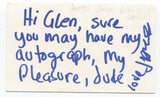 Hi Glen, sure
you may have my
autograph, my
Pleasure, dude
love